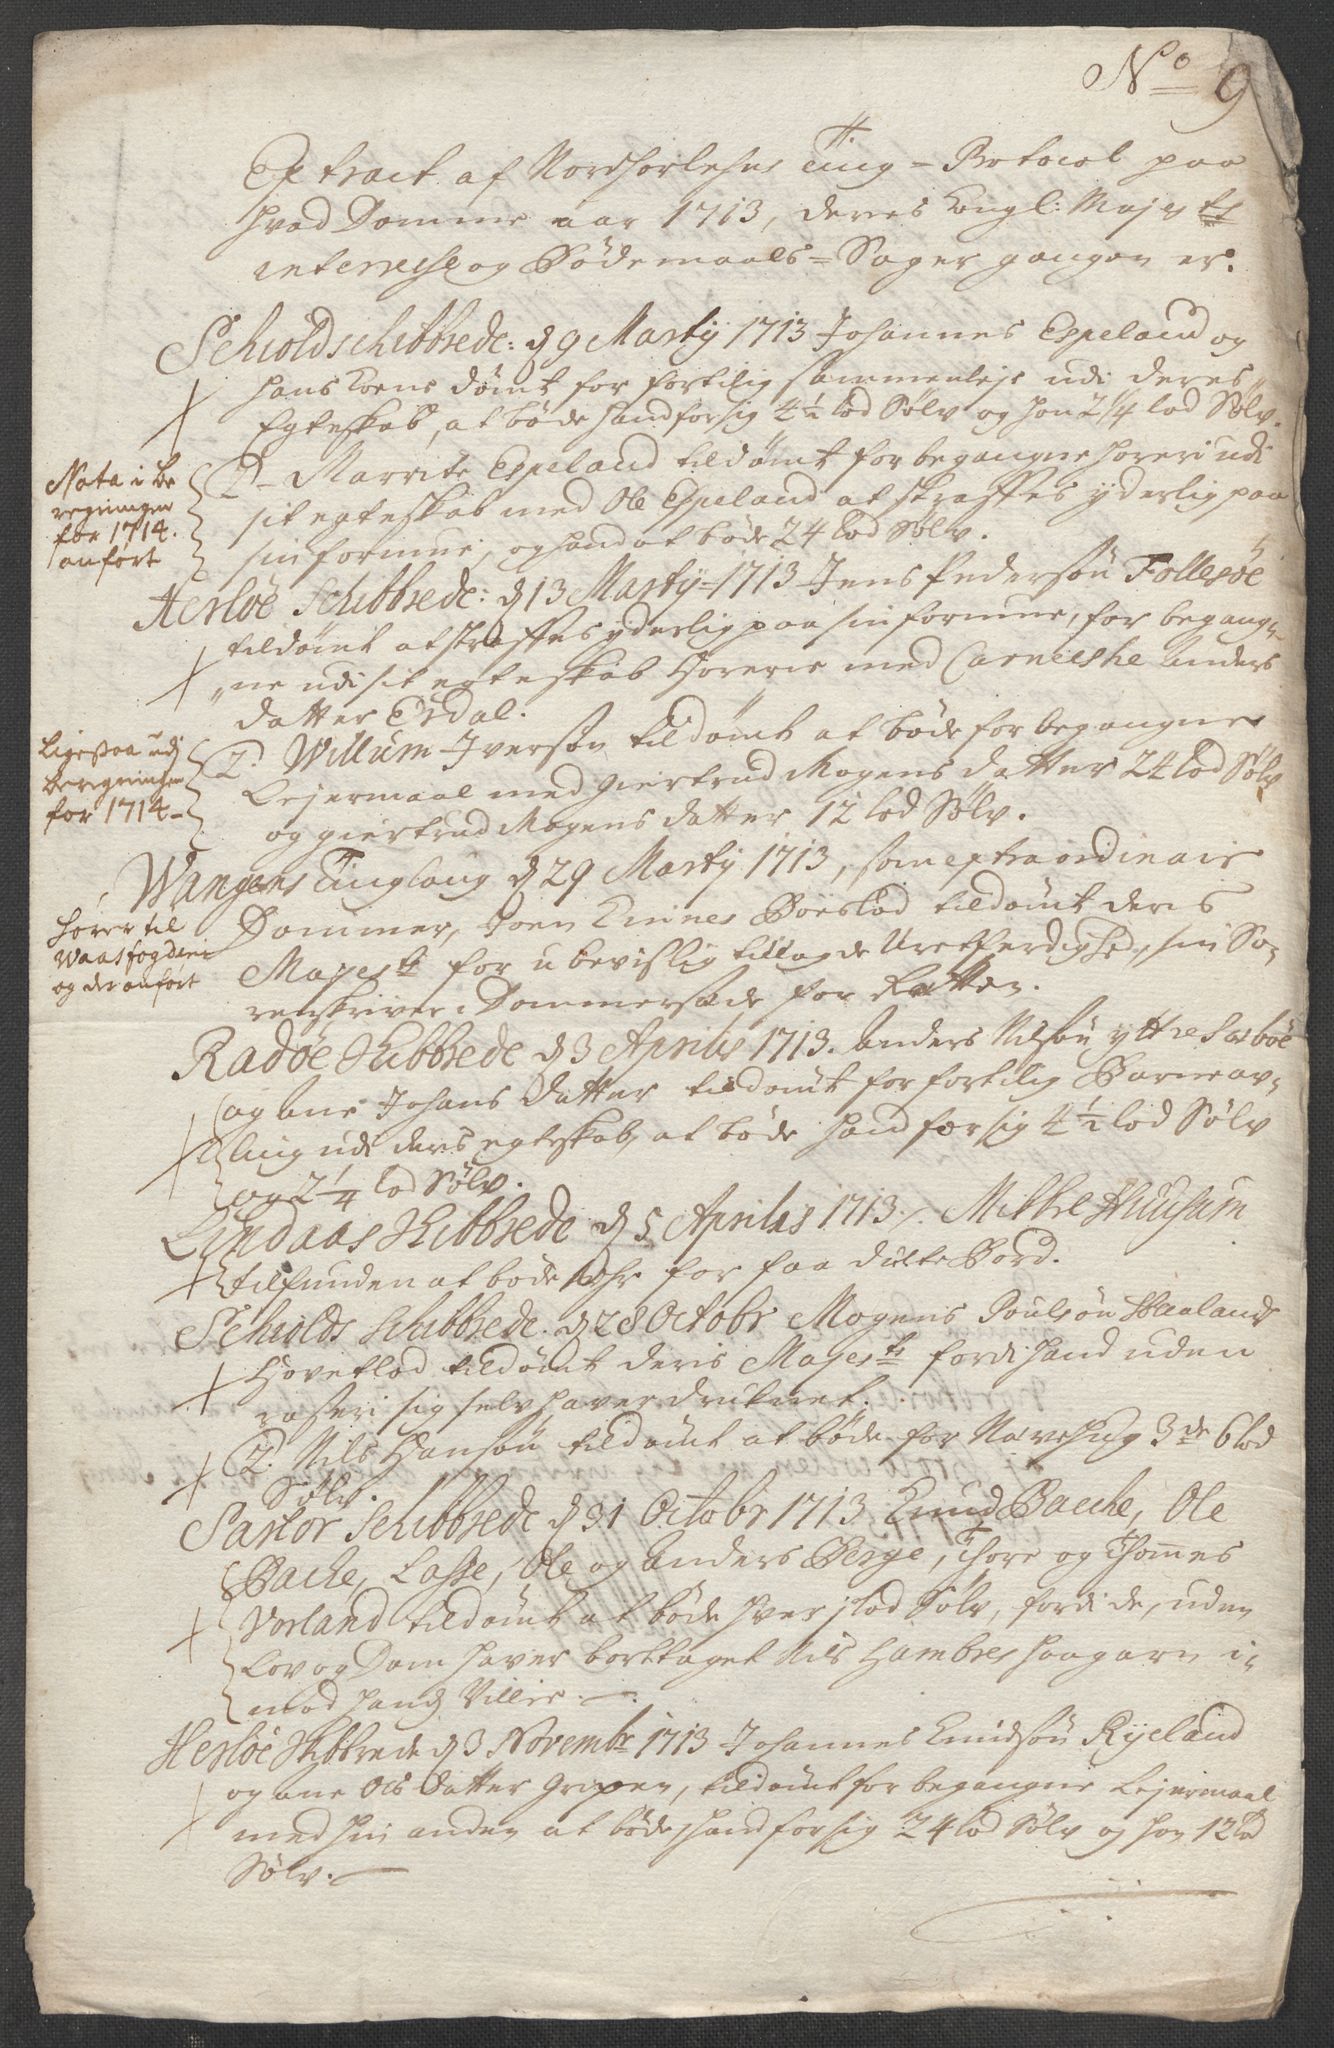 No 9
Extract af Nordhorlehns Ting-Protocol paa
hvad Domme aar 1713, deres Kongl: Majts
interesse og Bødemaals-Sager gangen er.
Schioldschibbrede: d 9 Marty 1713 Johannes Espeland og
hans Kone dømt for fortilig sammenleje udi deres
Egteskab, at bøde hand for sig 4½ lod Sølv og hon 2¼ lod Sølv.
D. Marrite Espeland tildømt for begangne horeri udi
sit egteskab med Ole Espeland at straffes yderlig paa
sin formue, og hand at bøde 24 lod Sølv.
Nota i be
regningen
for 1714.
anført
Herløe Schibbrede: d 13 Marty 1713 Jens Pedersøn Follesøe
tildømt at straffes yderlig paa sin formue, for begang-
ne udi sit egteskab Horerie med Carneshe Anders
datter Eisdal.
D. Willum Iversøn tildømt at bøde for begangne
Lejermaal med Giertrud Mogens datter 24 lod Sølv
og giertrud Mogens datter 12 lod Sølv.
Ligesaa udj
beregningen
for 1714-
Wangens Tinglaug d 29 Marty 1713, som extraordinair
Dommer, Joen Kinnes Boeslod tildømt deris
Majestt for ubevislig tillagde Uretferdighed, sin So-
renskriver i Dommersæde for Retten.
hører til
Waas fogderi
og der anført
Radøe Skibbrede d 3 Aprilis 1713. Anders Nilsøn yttre Sæbøe
og Ane Johans datter tildømt for fortilig Barneav-
ling udi ders egteskab, at bøde hand for sig 4½ lod Sølv
og 2¼ lod Sølv.
Lindaas Skibbrede d 5 Aprilis 1713. Mikkel Huusum
tilfunden at bøde for faa dulte Bord.
Schiolds Schibbrede. d 28 Octobr Mogens Poulsøn Haalands
Hovetlod tildømt deris Majestt fordi hand uden
raseri sig selv haver druknet.
D. Nils Hansøn tildømt at bøde for Navehug 3de 6 lod
Sølv.
Sartor Schibbrede d 31 Octobr 1713 Knud Bache, Ole
Bache, Lasse, Ole og Anders Berge, Thore og Thommes
Vorland tildømt at bøde hver j lod Sølv, fordi de, uden
Lov og Dom haver borttaget Nils Hambres haagarn i-
mod hans Villie.
Herløe Skibbrede d 3 Novembr 1713 Johannes Knudsøn Ryeland
og ane Ols datter Gripen, tildømt for begangne Lejermaal
med hin anden at bøde, hand for sig 24 lod Sølv og hon 12 lod
Sølv.